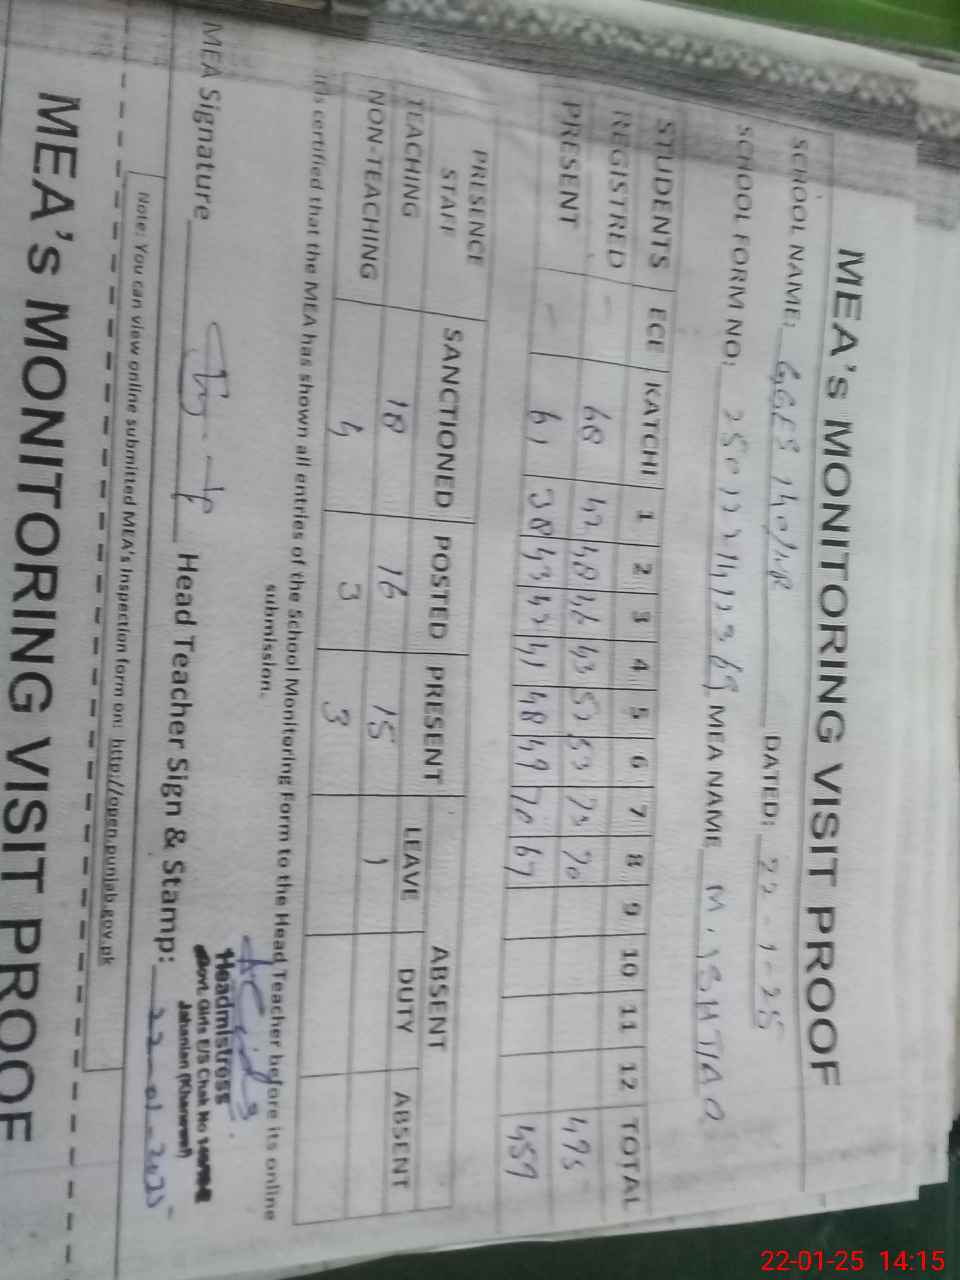 MEA's MONITORING VISIT PROOF
SCHOOL NAME: GGES 140/10R DATED: 22-1-25
SCHOOL FORM NO: MEA NAME M. ISHTIAQ
STUDENTS ECE KATCHI 1 2 3 4 5 6 7 8 9 10 11 12 TOTAL
REGISTRED - 68 42 48 46 43 52 53 73 70 495
PRESENT - 61 38 43 42 41 48 49 70 67 459
PRESENCE STAFF SANCTIONED POSTED PRESENT ABSENT
LEAVE DUTY ABSENT
TEACHING 18 16 15 1
NON-TEACHING 4 3 3
It is certified that the MEA has shown all entries of the School Monitoring Form to the Head Teacher before its online
submission.
Headmistress
Govt. Girls E/S Chak No
Jahanian (Khanewal)
MEA Signature Head Teacher Sign & Stamp: 22-01-2025
Note: You can view online submitted MEA's Inspection form on: http://open.punjab.gov.pk
MEA's MONITORING VISIT PROOF
22-01-25 14:15